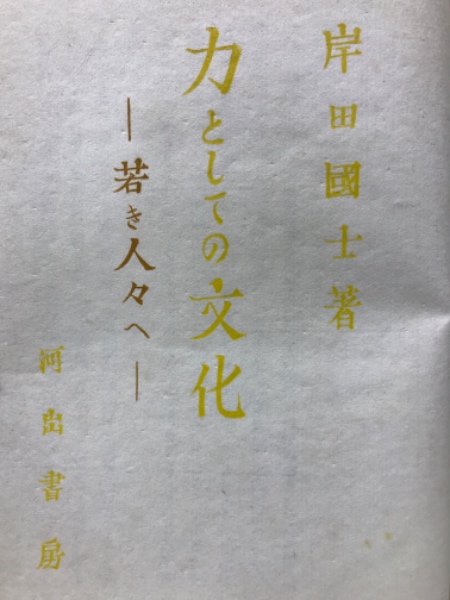 岸田國士著
力としての文化
―若き人々へ―
河出書房